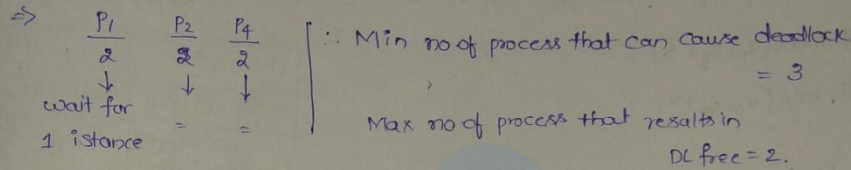 => P1 P2 P4
2 2 2
↓ ↓ ↓
wait for = =
1 istance
∴ Min no of process that can cause deadlock
= 3
Max no of process that results in
DL free = 2.